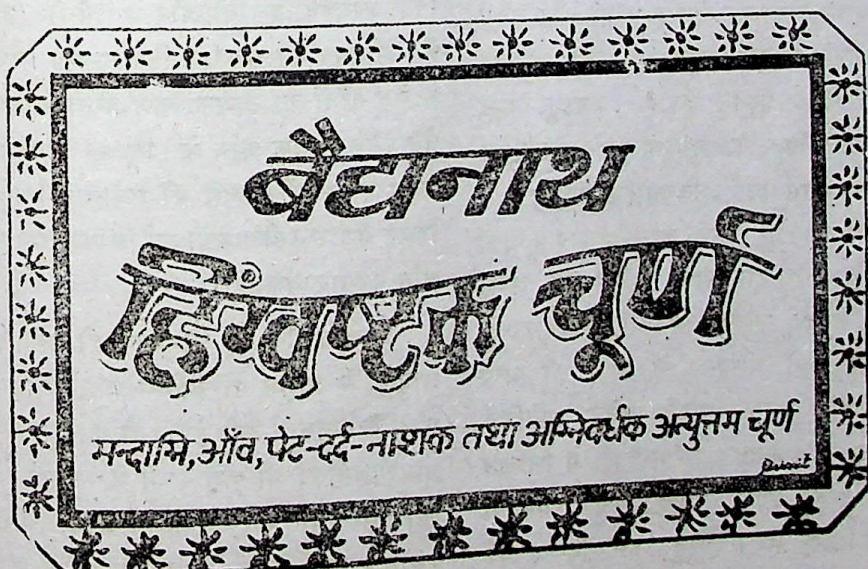 बैद्यनाथ
हिंग्वष्टक चूर्ण
मन्दाग्नि, आँव, पेट-दर्द-नाशक तथा अग्निवर्धक अत्युत्तम चूर्ण